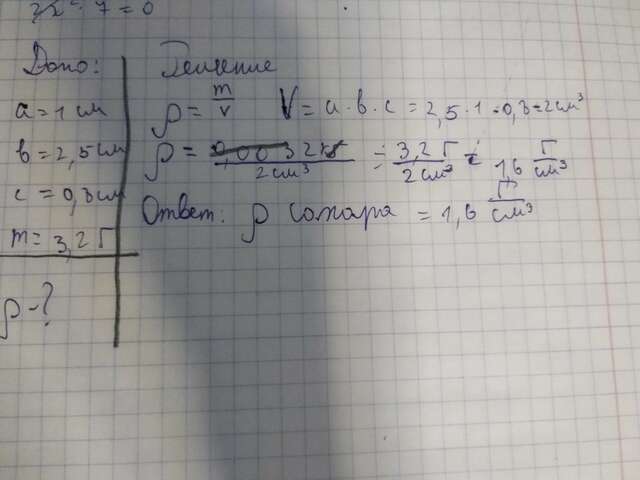 2x² - 7 = 0
Дано:
a = 1 см
в = 2,5 см
c = 0,8 см
m = 3,2 г
ρ - ?
Решение
ρ = m/v V = a · в · c = 2,5 · 1 · 0,8 = 2 см³
ρ = 3,2 г / 2 см³ = 1,6 г/см³
Ответ: ρ сахара = 1,6 г/см³